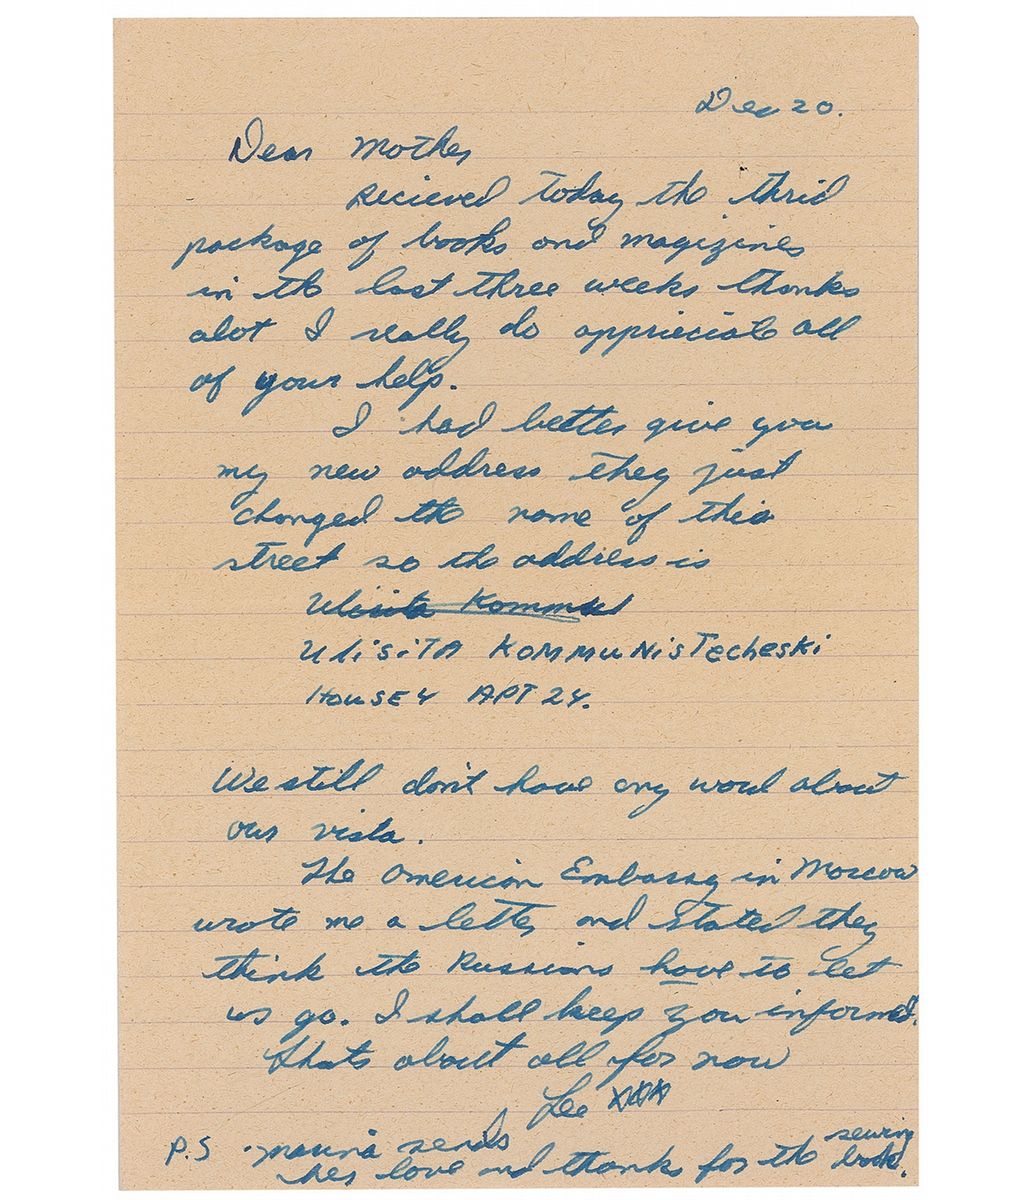 Dec 20.
Dear Mother
Recieved today the thrid
package of books and magizines
in the last three weeks thanks
alot I really do appriciate all
of your help.
I had better give you
my new address they just
changed the name of this
street so the address is
Ulisita Kommu
ULiSiTA KOMMUNiSTecheSKi
HOUSE 4 APT 24.
We still don't have any word about
our vista.
The American Embassy in Moscow
wrote me a letter and stated they
think the Russians have to let
us go. I shall keep you informed.
Thats about all for now
Lee XXX
P.S Marina sends
her love and thank for the sewing
book.